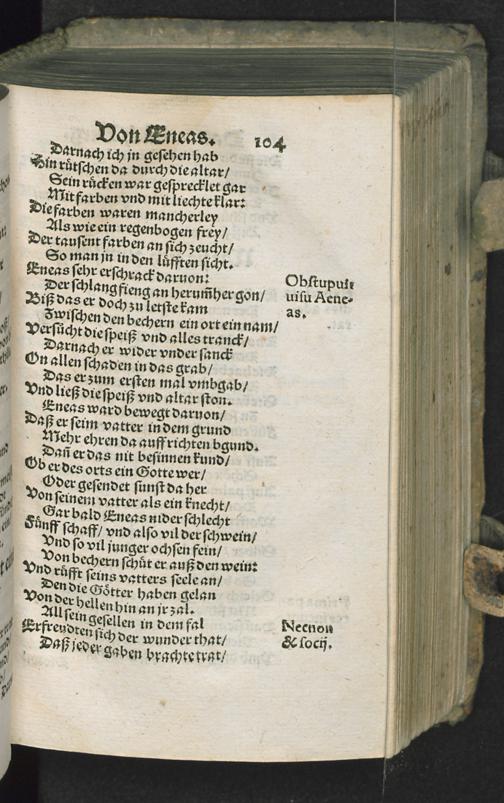 Von Eneas. 104
Darnach ich jn gesehen hab
Hin rütschen da durch die altar/
Sein rücken war gesprecklet gar
Mit farben vnd mit liechte klar:
Die farben waren mancherley
Als wie ein regenbogen frey/
Der tausent farben an sich zeucht/
So man jn in den lüfften sicht.
Eneas sehr erschrack daruon:
Der schlang fieng an herum̃her gon/
Biß das er doch zu letste kam
Zwischen den bechern ein ort ein nam/
Versücht die speiß vnd alles tranck/
Darnach er wider vnder sanck
On allen schaden in das grab/
Das er zum ersten mal vmbgab/
Vnd ließ die speiß vnd altar ston.
Eneas ward bewegt daruon/
Daß er seim vatter in dem grund
Mehr ehren da auff richten bgund.
Dañ er das nit besinnen kund/
Ob er des orts ein Gotte wer/
Oder gesendet sunst da her
Von seinem vatter als ein knecht/
Gar bald Eneas nider schlecht
Fünff schaff/ vnd also vil der schwein/
Vnd so vil junger ochsen fein/
Von bechern schüt er auß den wein:
Vnd rüfft seins vatters seele an/
Den die Götter haben gelan
Von der hellen hin an jr zal.
All sein gesellen in dem fal
Erfreudten sich der wunder that/
Daß jeder gaben brachte trat/
Obstupuit
uisu Aene-
as.
Necnon
& socij.